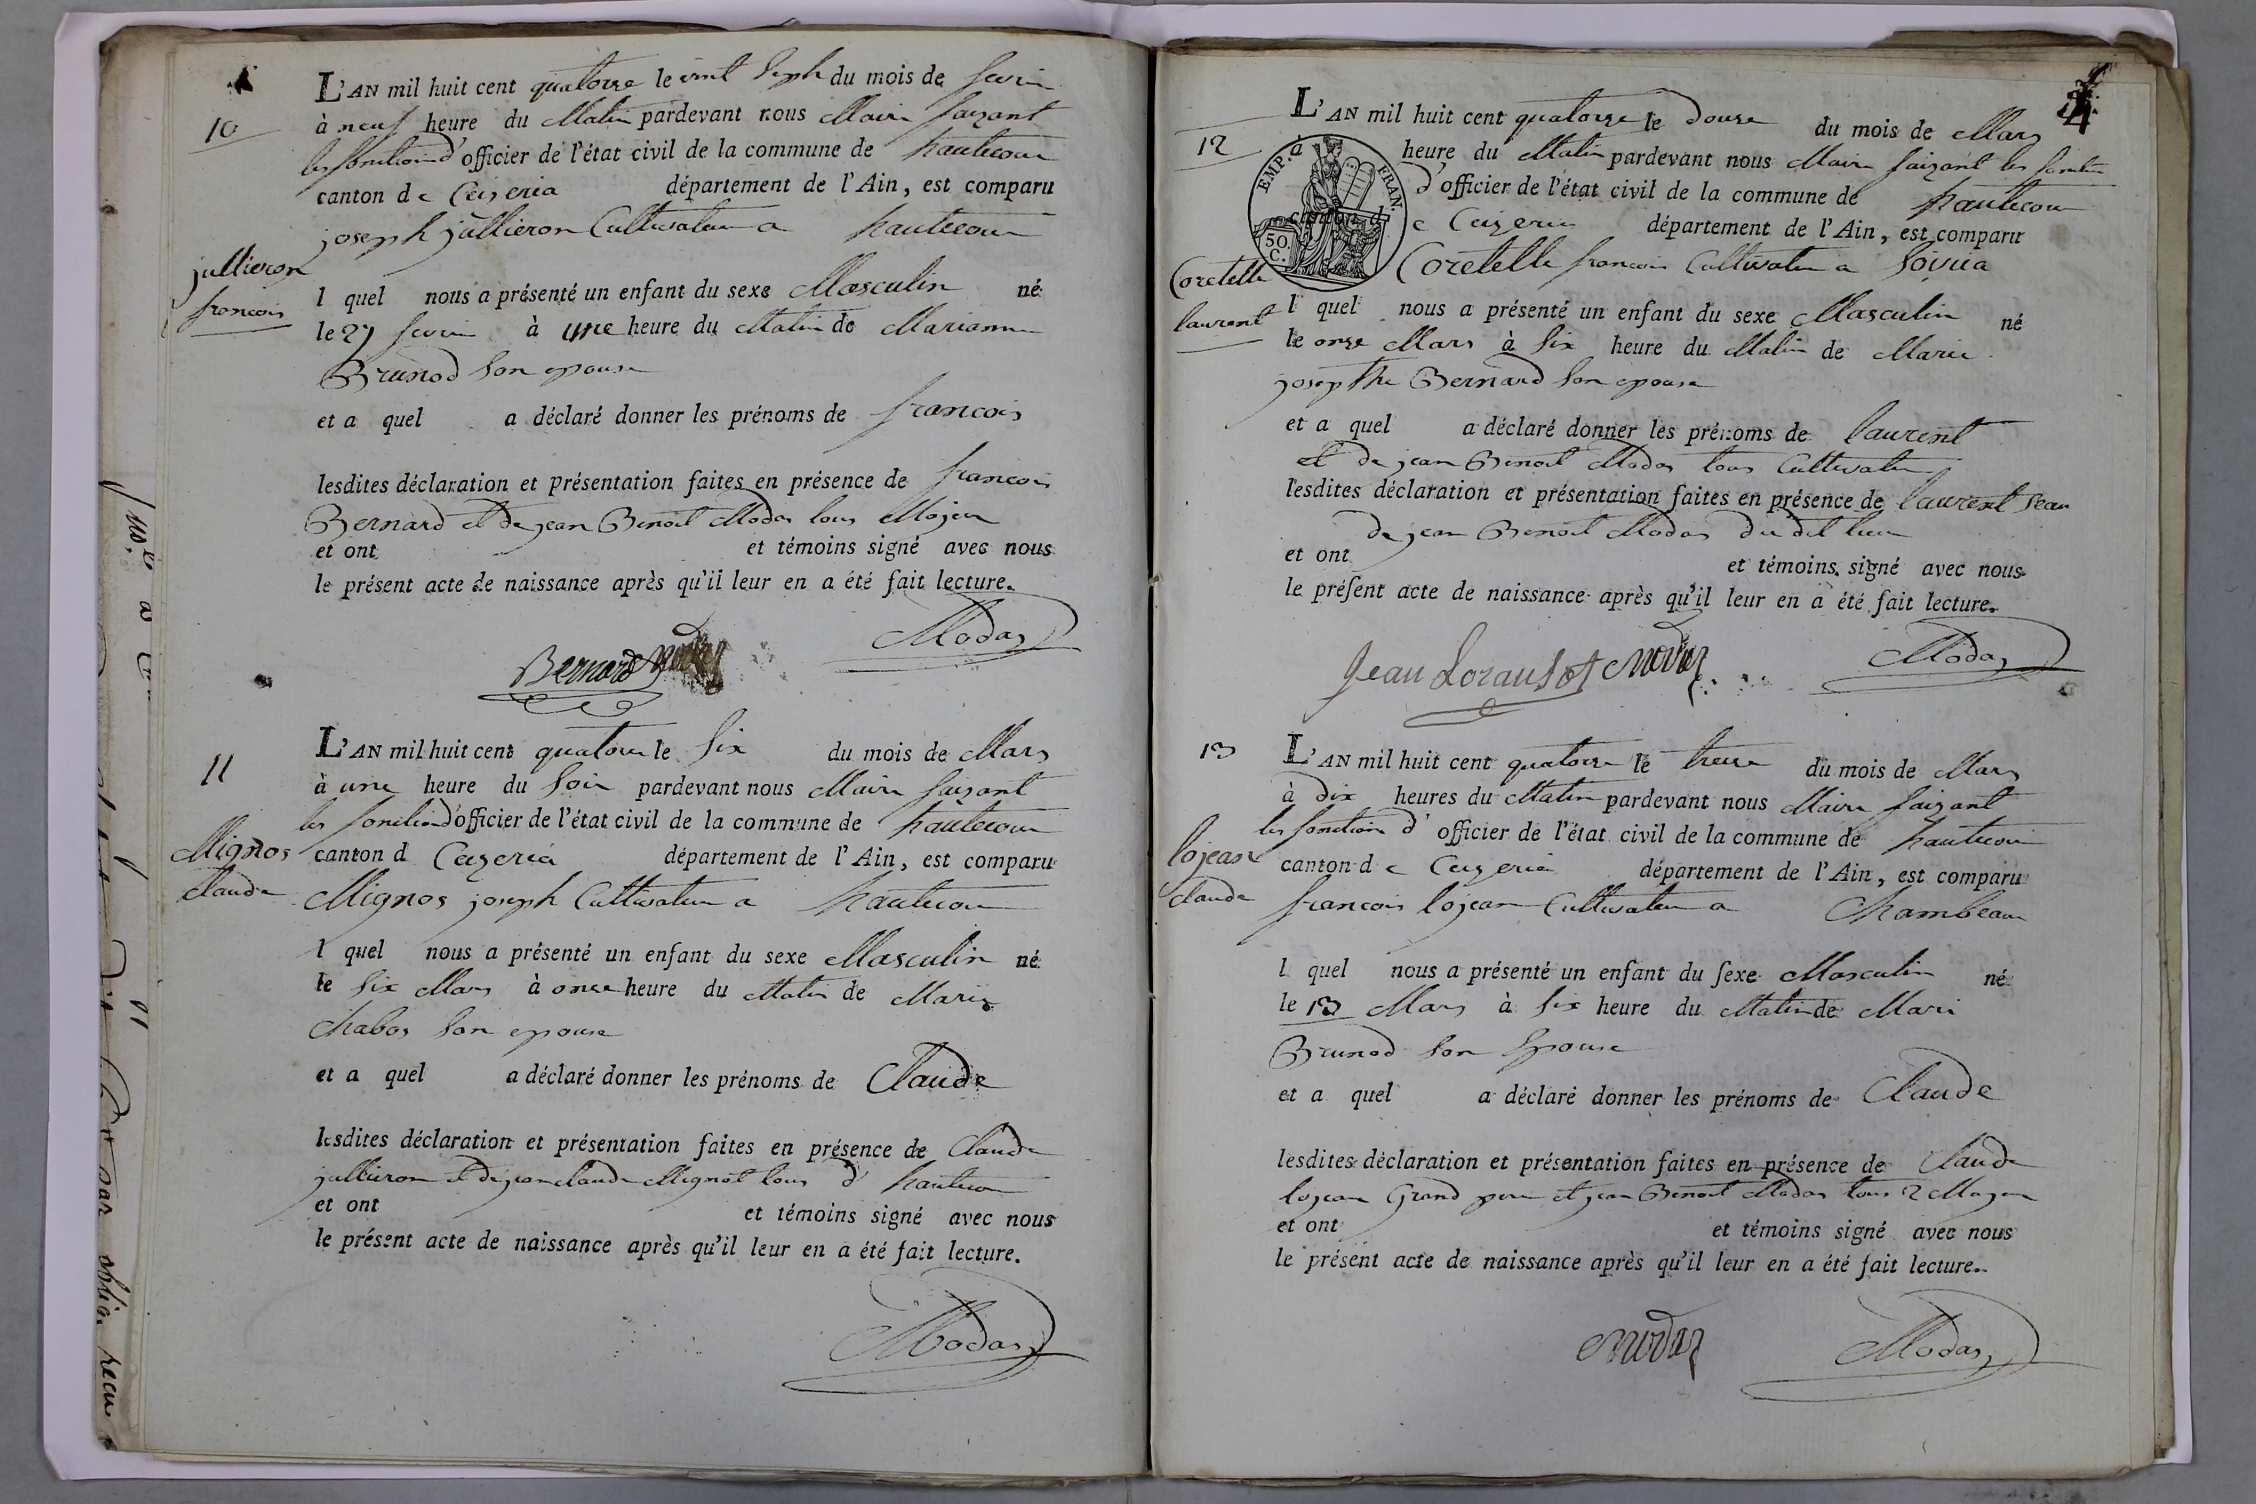 10
L'AN mil huit cent quatorze le vint Seph du mois de fevrie
à neuf heure du Matin pardevant nous Maire faizant
les fonction d'officier de l'état civil de la commune de hautecour
canton de Ceizeria département de l'Ain, est comparu
joseph jullieron Cultivateur a hautecour
jullieron
francois
l quel nous a présenté un enfant du sexe Masculin né
le 27 fevrie à une heure du Matin de Marianne
Brunod son epouse
et a quel a déclaré donner les prénoms de francois
lesdites déclaration et présentation faites en présence de francois
Bernard et de jean Benoit Modas tous Majeur
et ont et témoins signé avec nous
le présent acte de naissance après qu'il leur en a été fait lecture.
Bernard Modas
11
L'AN mil huit cent quatorze le Six du mois de Mars
à une heure du Soir pardevant nous Maire faizant
les fonction d'officier de l'état civil de la commune de hautecour
Mignos
claude
canton d Ceyzeria département de l'Ain, est comparu
Mignos joseph Cultivateur a hautecour
l quel nous a présenté un enfant du sexe Masculin né
le Six Mars à onze heure du Matin de Marie
Chabos son epouse
et a quel a déclaré donner les prénoms de Claude
lesdites déclaration et présentation faites en présence de Claude
jullieron et de jean claude Mignot tous d' hautecour
et ont et témoins signé avec nous
le présent acte de naissance après qu'il leur en a été fait lecture.
Modas
4
12
L'AN mil huit cent quatorze le Douze du mois de Mars
à heure du Matin pardevant nous Maire faizant les fonction
d'officier de l'état civil de la commune de hautecour
EMP. FRAN.
50. C.
canton de Ceyzeria département de l'Ain, est comparu
Coretelle francois Cultivateur a
Coretelle
laurent
l quel nous a présenté un enfant du sexe Masculin né
le onze Mars à Six heure du Matin de Marie
josepthe Bernard son epouse
et a quel a déclaré donner les prénoms de laurent
et de jean Benoit Modas tous Cultivateur
lesdites déclaration et présentation faites en présence de laurent jean
de jean Benoit Modas du dit lieu
et ont et témoins signé avec nous
le présent acte de naissance après qu'il leur en a été fait lecture.
Jean Modas Modas
13
L'AN mil huit cent quatorze le treize du mois de Mars
à dix heures du Matin pardevant nous Maire faizant
les fonction d'officier de l'état civil de la commune de hautecour
lojean
claude
canton de Ceyzeria département de l'Ain, est comparu
francois lojean Cultivateur a Chambeau
l quel nous a présenté un enfant du sexe Masculin né
le 13 Mars à Six heure du Matin de Mari
Brunod son Epouse
et a quel a déclaré donner les prénoms de Claude
lesdites déclaration et présentation faites en présence de Claude
lojean Grand pere et jean Benoit Modas tous 2 Majeur
et ont et témoins signé avec nous
le présent acte de naissance après qu'il leur en a été fait lecture.
Modas Modas